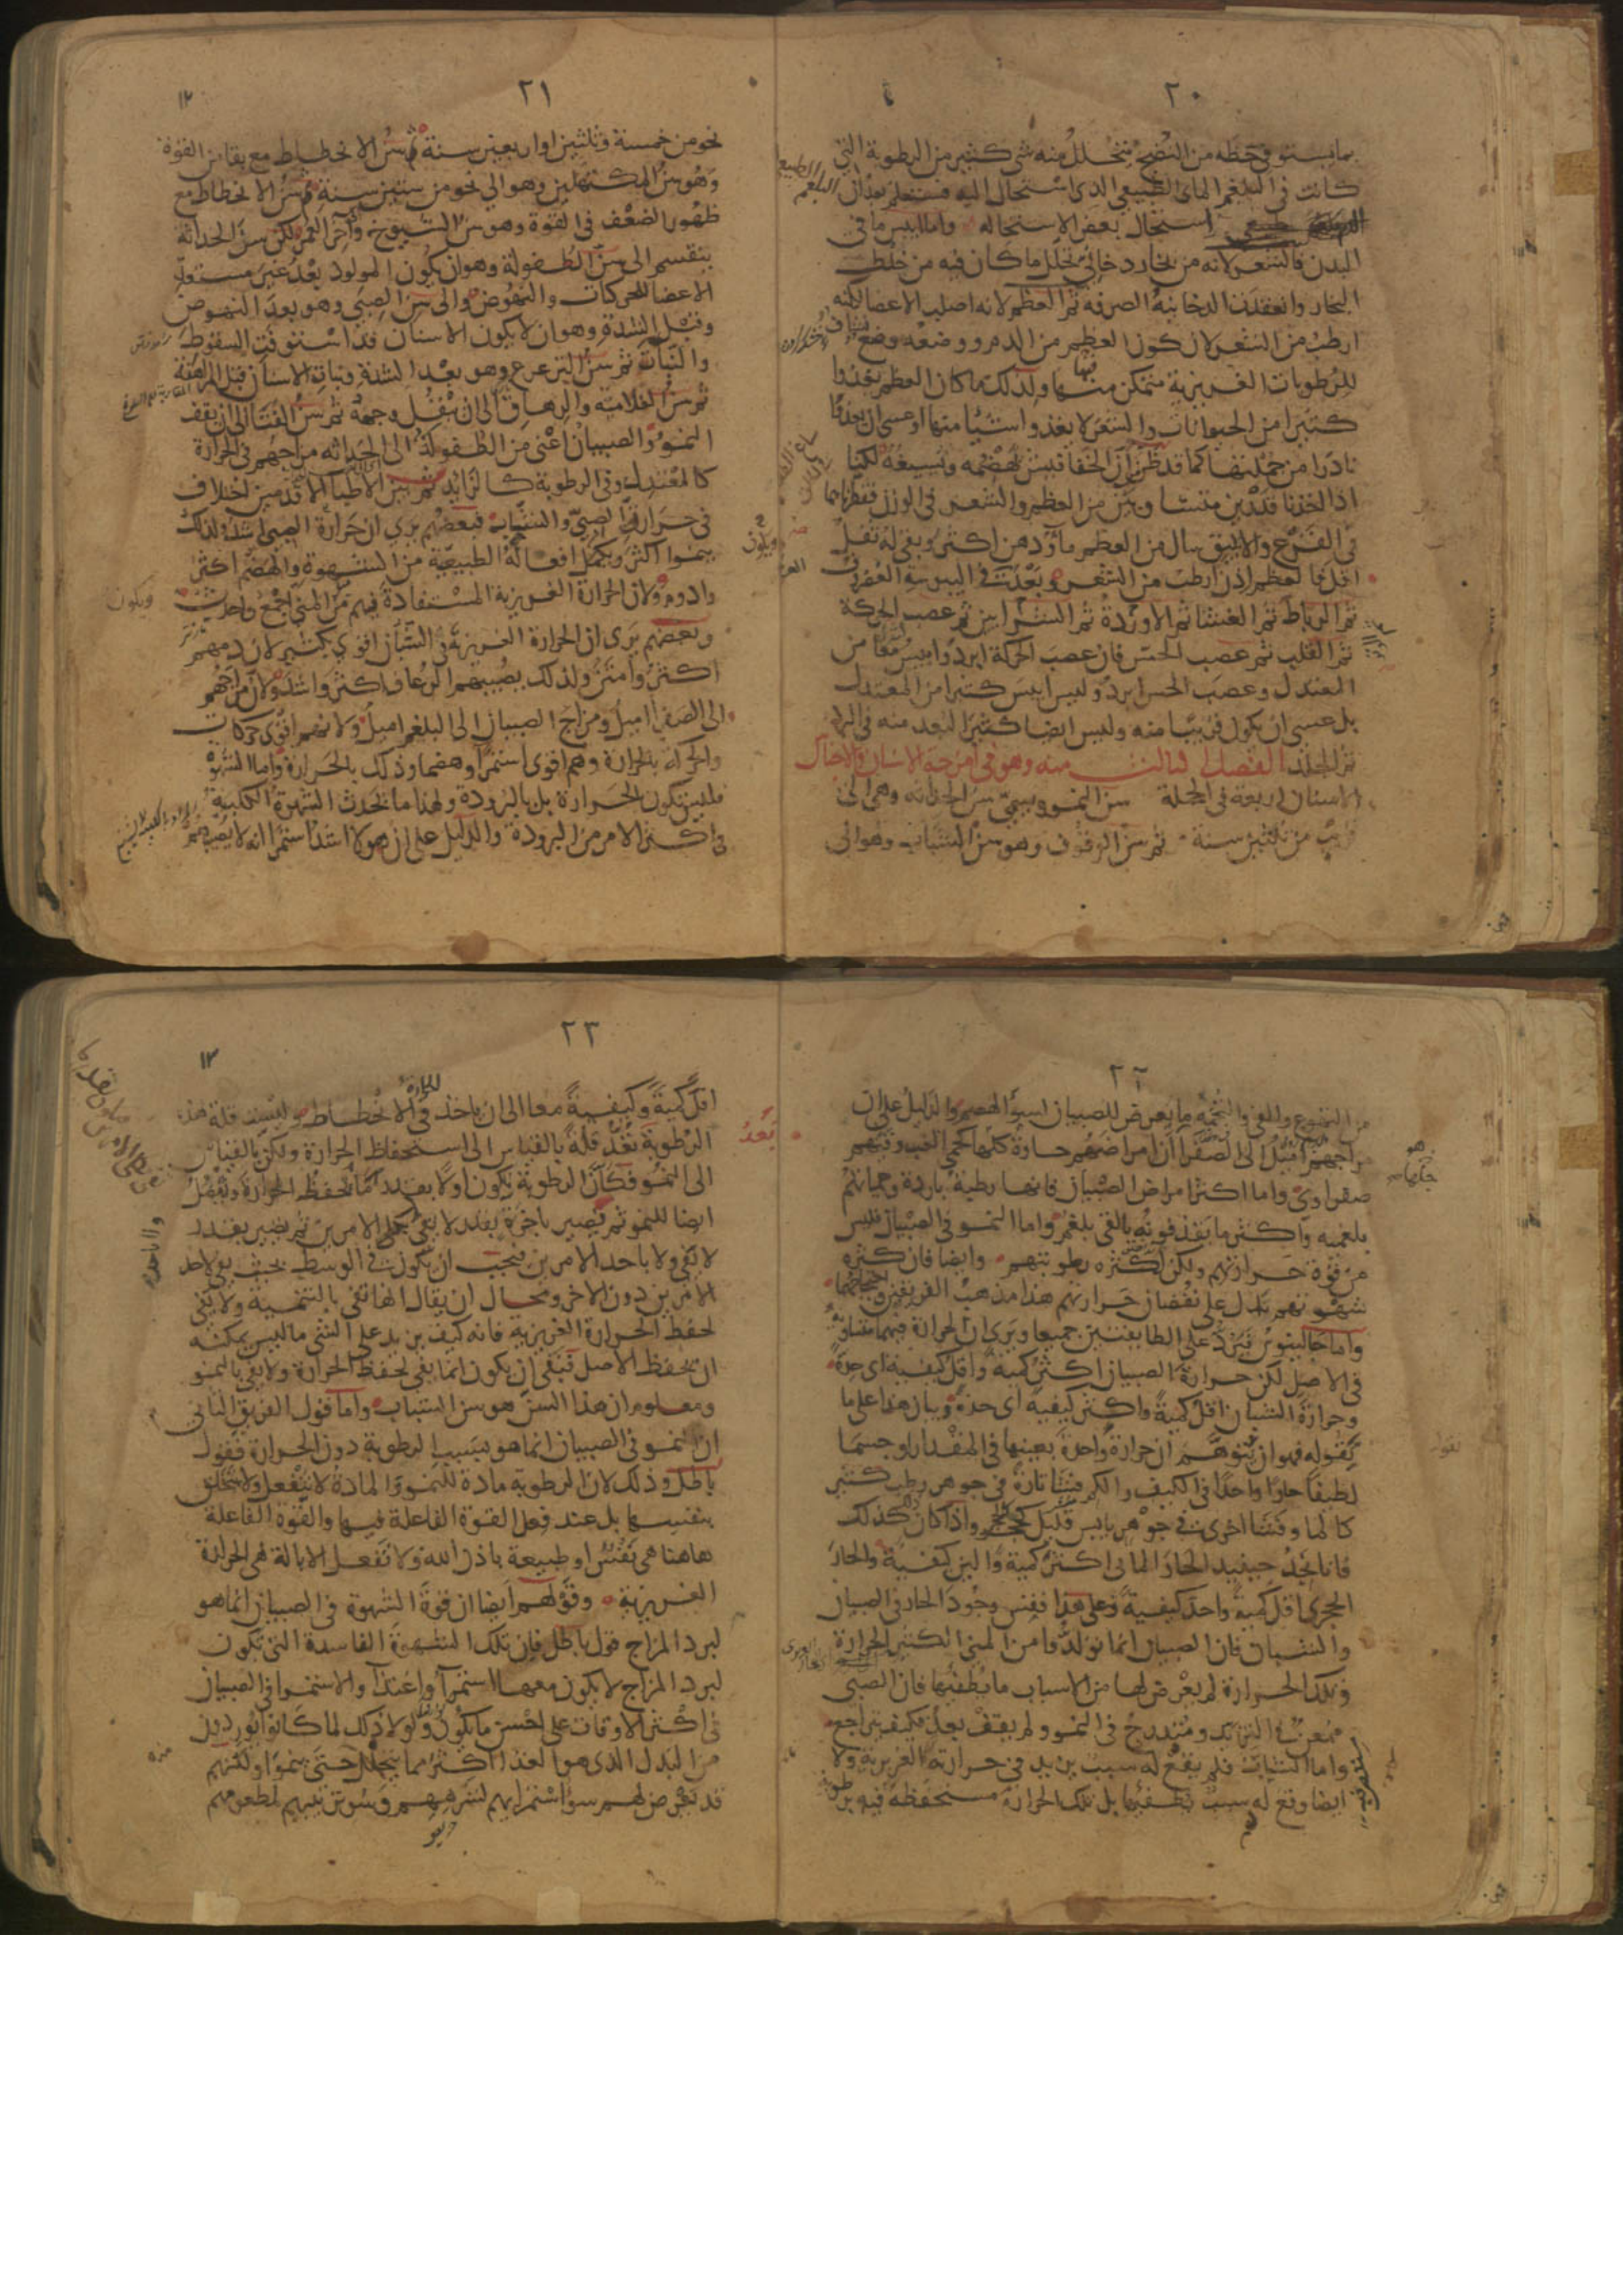 ٢٠
بما يستوفي حظه من النضج يتحلل منه شي كثير من الرطوبة التي
كانت في البلغم الماى الطبيعي الذى استحال اليه
استحال بعض الاستحاله واما ايبس ما في
البدن فالشعر لانه من بخار دخاني تحلل ما كان فيه من خلط
البخار وانعقدت الدخانية الصرفه ثم العظم لانه اصلب الاعضا لكنه
ارطب من الشعر لان كون العظم من الدم ووضعه وضع نشاف
للرطوبات الغريزية متمكن منها ولذلك ما كان العظم يغذوا
كثيرا من الحيوانات والشعر لا يغذو شيئا منها او عسى ان يغذو
نادرا من جملتها كما قد ظن ان الخفافيش تهضمه وتسيغه لكنا
اذا اخذنا قدرين متساويين من العظم والشعر في الوزن فقطرناهما
في القرع والانبيق سال من العظم ماء ودهن اكثر وبقي له ثقل
اقل فالعظم اذن ارطب من الشعر وبعد العظم في اليبوسة الغضروف
ثم الرباط ثم الغشا ثم الاوردة ثم الشرايين ثم عصب الحركة
ثم القلب ثم عصب الحس فان عصب الحركة ابرد وايبس معا من
المعتدل وعصب الحس ابرد وليس ايبس كثيرا من المعتدل
بل عسى ان يكون قريبا منه وليس ايضا كثير البعد منه في البرد
ثم الجلد الفصل الثالث منه وهو في امزجة الاسنان والاجناس
الاسنان اربعة في الجملة سن النمو ويسمى سن الحداثه وهي الى
قريب من ثلثين سنة ثم سن الوقوف وهو سن الشباب وهو الى
٢١
١٢
نحو من خمسة وثلثين او اربعين سنة ثم سن الانحطاط مع بقا من القوة
وهو سن المكتهلين وهو الى نحو من ستين سنة ثم سن الانحطاط مع
ظهور الضعف في القوة وهو سن الشيوخ وآخر العمر لكن سن الحداثة
ينقسم الى سن الطفولة وهو ان يكون المولود بعد غير مستعد
الاعضا للحركات والنهوض والى سن الصبى وهو بعد النهوض
وقبل الشدة وهو ان لا يكون الاسنان قد استوفت السقوط
والنبات ثم سن الترعرع وهو بعد الشدة ونبات الاسنان قبل المراهقة
ثم سن الغلامية والرهاق الى ان يبقل وجهه ثم سن الفتا الى ان يقف
النمو والصبيان اعنى من الطفولة الى الحداثه مزاجهم في الحرارة
كالمعتدل وفي الرطوبة كالزايد ثم بين الاطبا الاقدمين اختلاف
في حرارة الصبي والشباب فبعضهم يرى ان حرارة الصبى اشد ولذلك
ينموا اكثر ويكمل افعاله الطبيعية من الشهوة والهضم اكثر
وادوم ولان الحرارة الغريزية المستفادة فيهم من المني اجمع واحدث
وبعضهم يرى ان الحرارة الغريزية في الشبان اقوي بكثير لان دمهم
اكثر وامتن ولذلك يصيبهم الرعاف اكثر واشد ولان مزاجهم
الى الصفرا اميل ومزاج الصبيان الى البلغم اميل ولانهم اقوى حركات
والحركة بالحرارة وهم اقوى استمراء وهضما وذلك بالحرارة واما الشهوة
فليس تكون الحرارة بل بالبرودة ولهذا ما تحدث الشهوة الكلبية
في اكثر الامر من البرودة والدليل على ان هولا اشد استمرا انه لا يصيبهم
٢٢
من التهوع والقي والتخمة ما يعرض للصبيان لسوء الهضم والدليل على ان
مزاجهم اميل الى الصفرا ان امراضهم حادة كلها كحمى الغب وقيهم
صفراوى واما اكثر امراض الصبيان فانها رطبة باردة وحمياتهم
بلغمية واكثر ما يقذفونه بالقي بلغم واما النمو في الصبيان فليس
من قوة حرارتهم ولكن لكثره رطوبتهم وايضا فان كثره
شهوتهم يدل على نقصان حرارتهم هذا مذهب الفريقين واحتجاجهما
واما جالينوس فيرد على الطايفتين جميعا ويرى ان الحرارة فيهما متساوية
في الاصل لكن حرارة الصبيان اكثر كمية واقل كيفية اى حدة
وحرارة الشبان اقل كمية واكثر كيفية اى حدة وبيان هذا على ما
يقوله فهو ان يتوهم ان حرارة واحدة بعينها في المقدار او جسما
لطيفا حارا واحدا في الكيف والكم فشا تارة في جوهر رطب كثير
كالما وفشا اخرى في جوهر يابس قليل كالحجر واذا كان كذلك
فانا نجد حينيد الحار المائي اكثر كمية والين كيفية والحار
الحجري اقل كمية واحد كيفية وعلى هذا فقس وجود الحار في الصبيان
والشبان فان الصبيان انما تولدوا من المني الكثير الحرارة
وتلك الحرارة لم يعرض لها من الاسباب ما يطفئها فان الصبى
ممعن في التزيد ومتدرج في النمو ولم يقف بعد فكيف يتراجع
واما الشباب فلم يقع له سبب يزيد في حرارته الغريزية ولا
ايضا وقع له سبب يطفئها بل تلك الحرارة مستحفظة فيه برطوبة
٢٣
١٣
اقل كمية وكيفية معا الى ان ياخذ في الانحطاط وليست قلة هذه
الرطوبة تعد قلة بالقياس الى استحفاظ الحرارة ولكن بالقياس
الى النمو فكأن الرطوبة تكون اولا بقدر ما تحفظ الحرارة وتفضل
ايضا للنمو ثم تصير باخرة بقدر لا يفي بكلى الامرين ثم يصير بقدر
لا يفي ولا باحد الامرين فيجب ان يكون في الوسط بحيث يفي لاحد
الامرين دون الاخر ومحال ان يقال انها تفي بالتنمية ولا تفي
لحفظ الحرارة الغريزية فانه كيف يزيد على الشئ ما ليس يمكنه
ان يحفظ الاصل فبقي ان يكون انما يفي لحفظ الحرارة ولا يفي بالنمو
ومعلوم ان هذا السن هو سن الشباب واما قول الفريق الثاني
ان النمو في الصبيان انما هو بسبب الرطوبة دون الحرارة فقول
باطل وذلك لان الرطوبة مادة للنمو والمادة لا تنفعل ولا تتخلق
بنفسها بل عند فعل القوة الفاعلة فيها والقوة الفاعلة
هاهنا هي نفس او طبيعة باذن الله ولا تفعل الا بالة هي الحرارة
الغريزية وقولهم ايضا ان قوة الشهوة في الصبيان انما هو
لبرد المزاج قول باطل فان تلك الشهوة الفاسدة التي تكون
لبرد المزاج لا يكون معها استمرا واغتذاء والاستمرا في الصبيان
في اكثر الاوقات على احسن ما يكون ولولا ذلك لما كانوا يوردون
من البدل الذى هو الغذا اكثر مما يتحلل حتى ينموا ولكنهم
قد يعرض لهم سؤ استمرايهم لشرههم وسوء ترتيبهم لمطعومهم